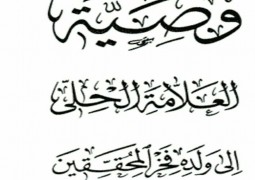 وَصِيَّة
العَلّامَةِ الحِلّي
إلى وَلَدِهِ فَخْرِ المُحَقِّقِين